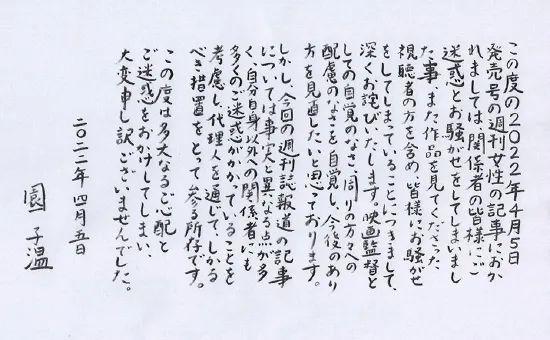 この度の2022年4月5日
発売号の週刊女性の記事におか
れましては関係者の皆様にご
迷惑とお騒がせをしてしまいまし
た事、また作品を見てくださった
視聴者の方を含め、皆様にお騒がせ
をしてしまっていることにつきまして、
深くお詫びいたします。映画監督と
しての自覚のなさ、周りの方々への
配慮のなさを自覚し、今後のあり
方を見直したいと思っております。
しかし、今回の週刊誌報道の記事
については事実と異なる点が多
く、自分自身以外への関係者にも
多くのご迷惑がかかっていることを
考慮し、代理人を通じて、しかる
べき措置をとって参る所存です。
この度は多大なるご心配と
ご迷惑をおかけしてしまい、
大変申し訳ございませんでした。
二〇二二年 四月五日
園 子温